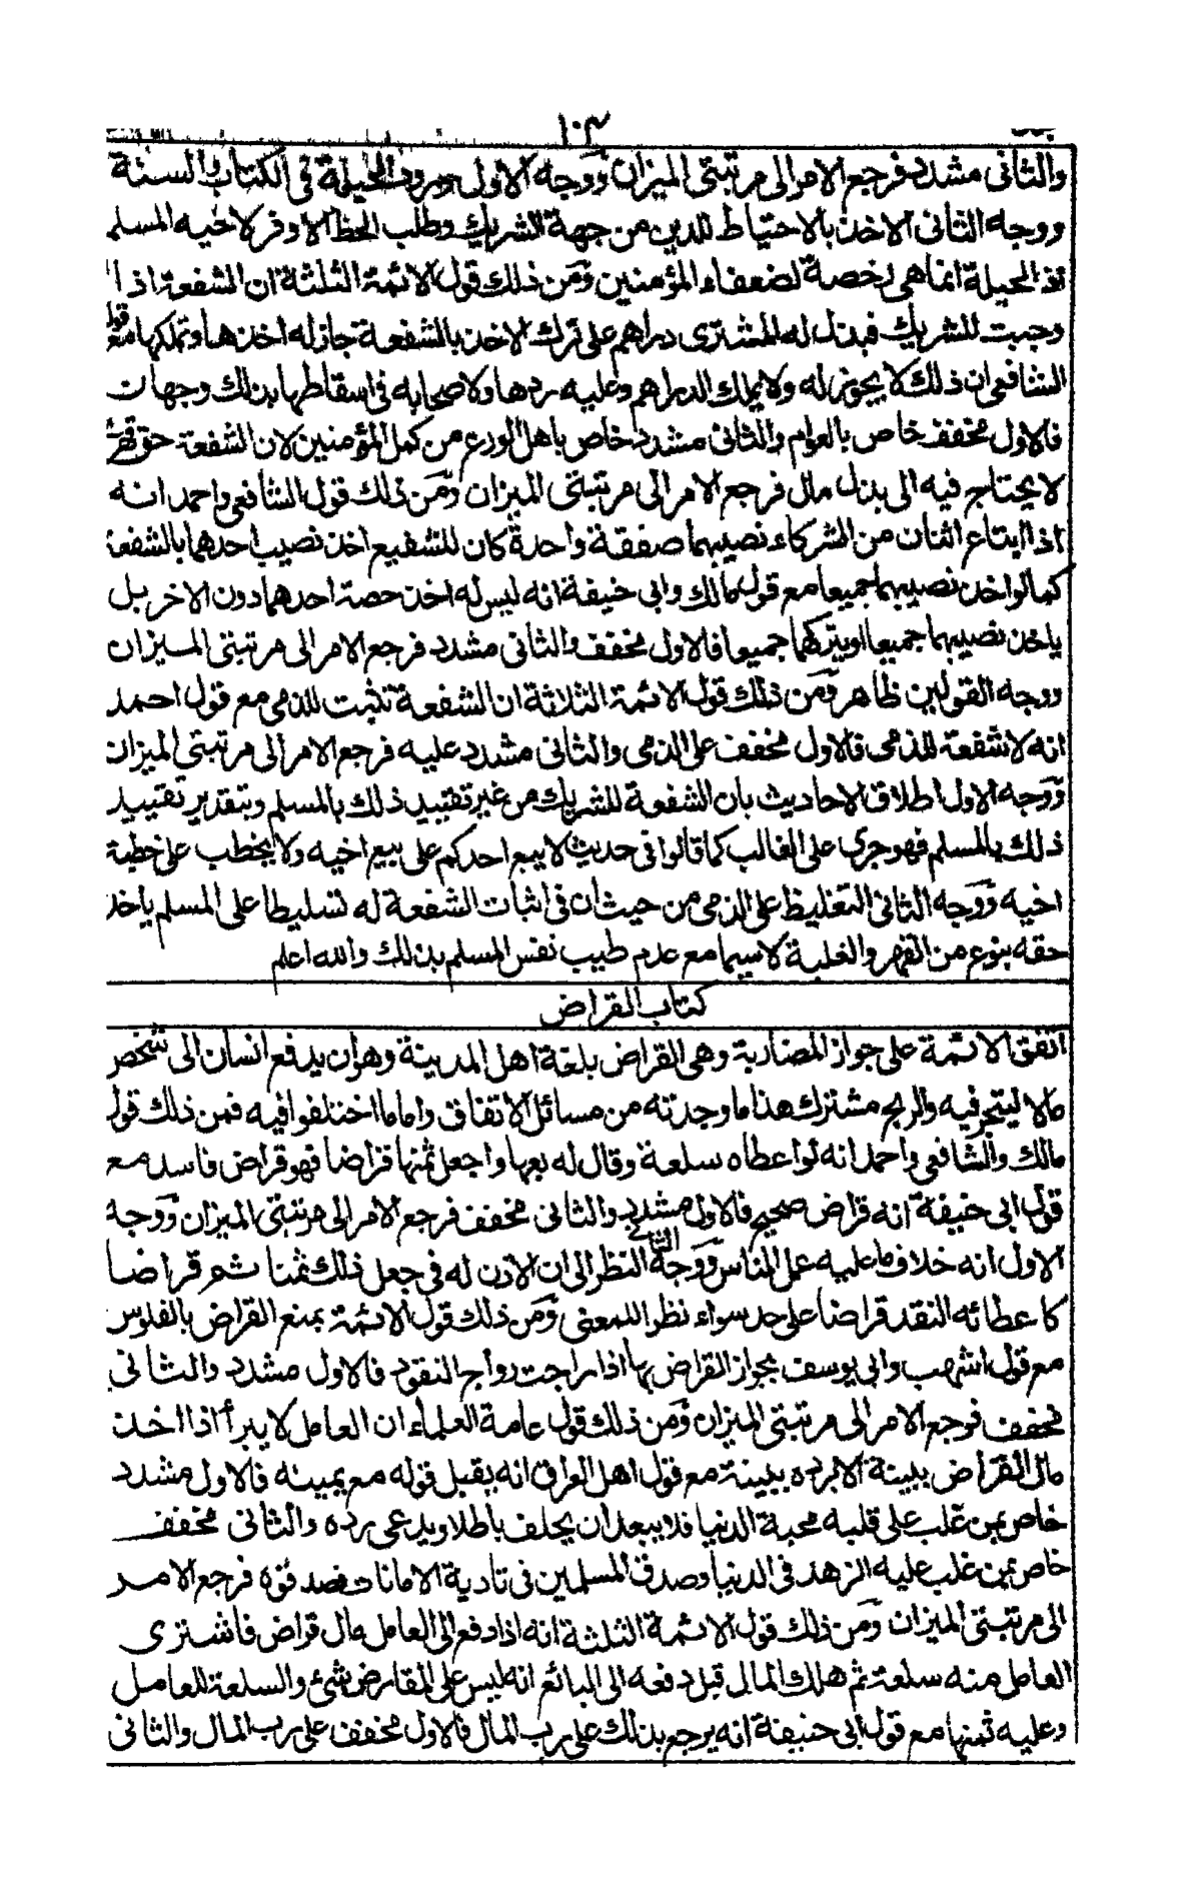 ١٠٣
والثانى مشدد فرجع الامر الى مرتبتى الميزان ووجه الاول ورود الحيلة فى الكتاب والسنة
ووجه الثانى الاخذ بالاحتياط للدين من جهة الشريك وطلب الحظ الاوفر لاخيه المسلم
اذ الحيلة انما هى رخصة لضعفاء المؤمنين ومن ذلك قول الائمة الثلثة ان الشفعة اذا
وجبت للشريك فبذل له المشترى دراهم على ترك الاخذ بالشفعة جاز له اخذها وتملكها مع قول
الشافعى ان ذلك لا يجوز له ولا يملك الدراهم وعليه ردها ولاصحابه فى اسقاطها بذلك وجهان
فالاول مخفف خاص بالعوام والثانى مشدد خاص باهل الورع من كمل المؤمنين لان الشفعة حق قهرى
لا يحتاج فيه الى بذل مال فرجع الامر الى مرتبتى الميزان ومن ذلك قول الشافعى واحمد انه
اذا ابتاع اثنان من الشركاء نصيبهما صفقة واحدة كان للشفيع اخذ نصيب احدهما بالشفعة
كما لو اخذ نصيبهما جميعا مع قول مالك وابى حنيفة انه ليس له اخذ حصة احدهما دون الاخر بل
ياخذ نصيبهما جميعا او يتركهما جميعا فالاول مخفف والثانى مشدد فرجع الامر الى مرتبتى الميزان
ووجه القولين ظاهر ومن ذلك قول الائمة الثلاثة ان الشفعة تثبت للذمى مع قول احمد
انه لا شفعة للذمى فالاول مخفف على الذمى والثانى مشدد عليه فرجع الامر الى مرتبتى الميزان
ووجه الاول اطلاق الاحاديث بان الشفعة للشريك من غير تقييد ذلك بالمسلم وبتقدير تقييد
ذلك بالمسلم فهو جرى على الغالب كما قالوا فى حديث لا يبع احدكم على بيع اخيه ولا يخطب على خطبة
اخيه ووجه الثانى التغليظ على الذمى من حيث ان فى اثبات الشفعة له تسليطا على المسلم ياخذ
حقه بنوع من القهر والغلبة لا سيما مع عدم طيب نفس المسلم بذلك والله اعلم
كتاب القراض
اتفق الائمة على جواز المضاربة وهى القراض بلغة اهل المدينة وهو ان يدفع انسان الى شخص
مالا ليتجر فيه والربح مشترك هذا ما وجدته من مسائل الاتفاق واما ما اختلفوا فيه فمن ذلك قول
مالك والشافعى واحمد انه لو اعطاه سلعة وقال له بعها واجعل ثمنها قراضا فهو قراض فاسد مع
قول ابى حنيفة انه قراض صحيح فالاول مشدد والثانى مخفف فرجع الامر الى مرتبتى الميزان ووجه
الاول انه خلاف ما عليه عمل الناس ووجه الثانى النظر الى ان الاذن له فى جعل ذلك ثمنا ثم قراضا
كاعطائه النقد قراضا على حد سواء نظرا للمعنى ومن ذلك قول الائمة بمنع القراض بالفلوس
مع قول اشهب وابى يوسف بجواز القراض بها اذا راجت رواج النقود فالاول مشدد والثانى
مخفف فرجع الامر الى مرتبتى الميزان ومن ذلك قول عامة العلماء ان العامل لا يبرأ اذا اخذ
مال القراض ببينة الا برده ببينة مع قول اهل العراق انه يقبل قوله مع يمينه فالاول مشدد
خاص بمن غلب على قلبه محبة الدنيا فلا يبعد ان يحلف باطلا ويدعى رده والثانى مخفف
خاص بمن غلب عليه الزهد فى الدنيا وصدق المسلمين فى تادية الامانات فصدقوه فرجع الامر
الى مرتبتى الميزان ومن ذلك قول الائمة الثلثة انه اذا دفع الى العامل مال قراض فاشترى
العامل منه سلعة ثم هلك المال قبل دفعه الى البائع انه ليس على المقارض شئ والسلعة للعامل
وعليه ثمنها مع قول ابى حنيفة انه يرجع بذلك على رب المال فالاول مخفف على رب المال والثانى